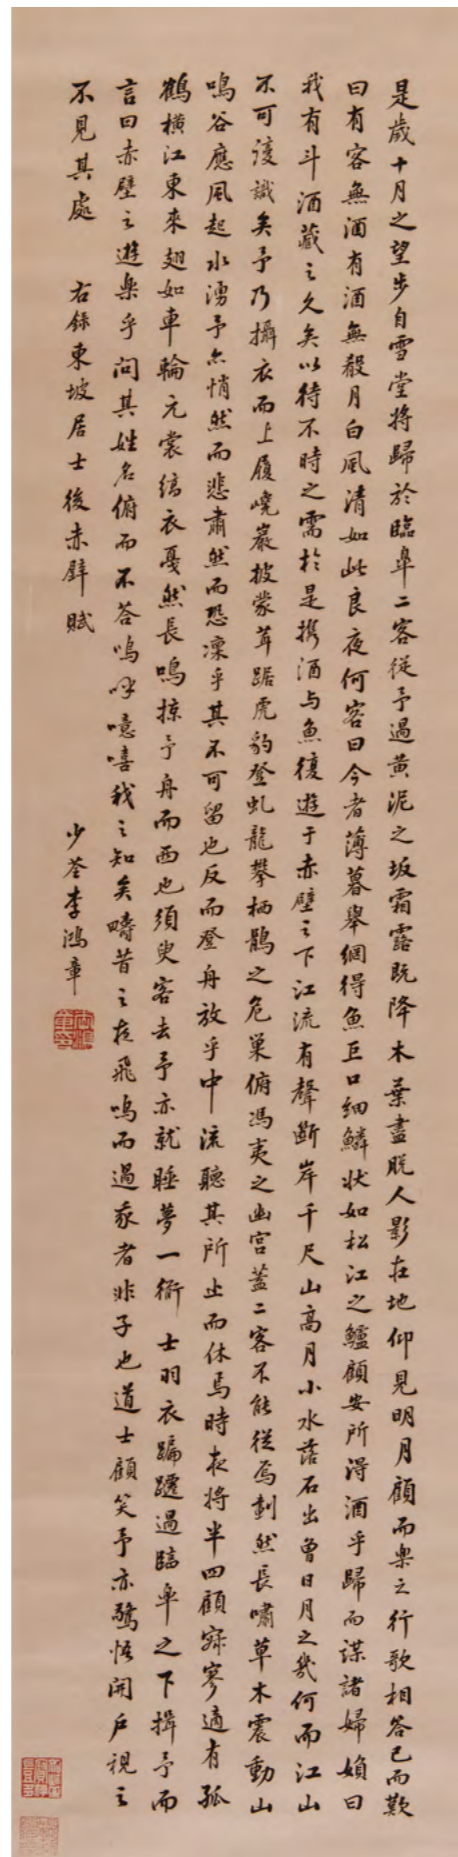 是歲十月之望步自雪堂將歸於臨皐二客從予過黃泥之坂霜露既降木葉盡脫人影在地仰見明月顧而樂之行歌相答已而歎
曰有客無酒有酒無殽月白風清如此良夜何客曰今者薄暮舉網得魚巨口細鱗狀如松江之鱸顧安所得酒乎歸而謀諸婦婦曰
我有斗酒藏之久矣以待不時之需於是携酒与魚復遊于赤壁之下江流有聲斷岸千尺山高月小水落石出曾日月之幾何而江山
不可復識矣予乃攝衣而上履巉巖披蒙茸踞虎豹登虬龍攀栖鶻之危巢俯馮夷之幽宮蓋二客不能從焉劃然長嘯草木震動山
鳴谷應風起水湧予亦悄然而悲肅然而恐凜乎其不可留也反而登舟放乎中流聽其所止而休焉時夜將半四顧寂寥適有孤
鶴橫江東來翅如車輪元裳縞衣戛然長鳴掠予舟而西也須臾客去予亦就睡夢一衟士羽衣蹁躚過臨皐之下揖予而
言曰赤壁之遊樂乎問其姓名俯而不答嗚呼噫嘻我之知矣疇昔之夜飛鳴而過我者非子也道士顧笑予亦驚悟開戶視之
不見其處 右錄東坡居士後赤壁賦 少荃李鴻章